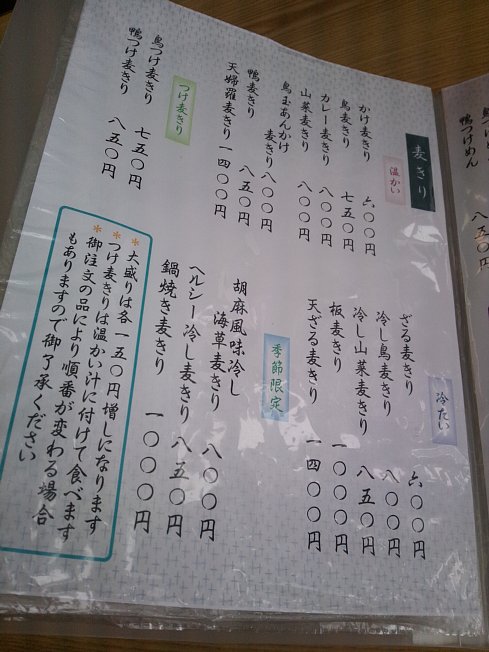 麦きり
温かい
かけ麦きり 六〇〇円
鳥麦きり 七五〇円
カレー麦きり 八〇〇円
山菜麦きり 八〇〇円
鳥玉あんかけ
麦きり 八〇〇円
鴨麦きり 八五〇円
天婦羅麦きり 一四〇〇円
つけ麦きり
鳥つけ麦きり 七五〇円
鴨つけ麦きり 八五〇円
冷たい
ざる麦きり 六〇〇円
冷し鳥麦きり 八〇〇円
冷し山菜麦きり 八五〇円
板麦きり 一〇〇〇円
天ざる麦きり 一四〇〇円
季節限定
胡麻風味冷し
海草麦きり 八〇〇円
ヘルシー冷し麦きり 八五〇円
鍋焼き麦きり 一〇〇〇円
*大盛りは各一五〇円増しになります
*つけ麦きりは温かい汁に付けて食べます
*御注文の品により順番が変わる場合
もありますので御了承ください
鴨つけめん 八五〇円